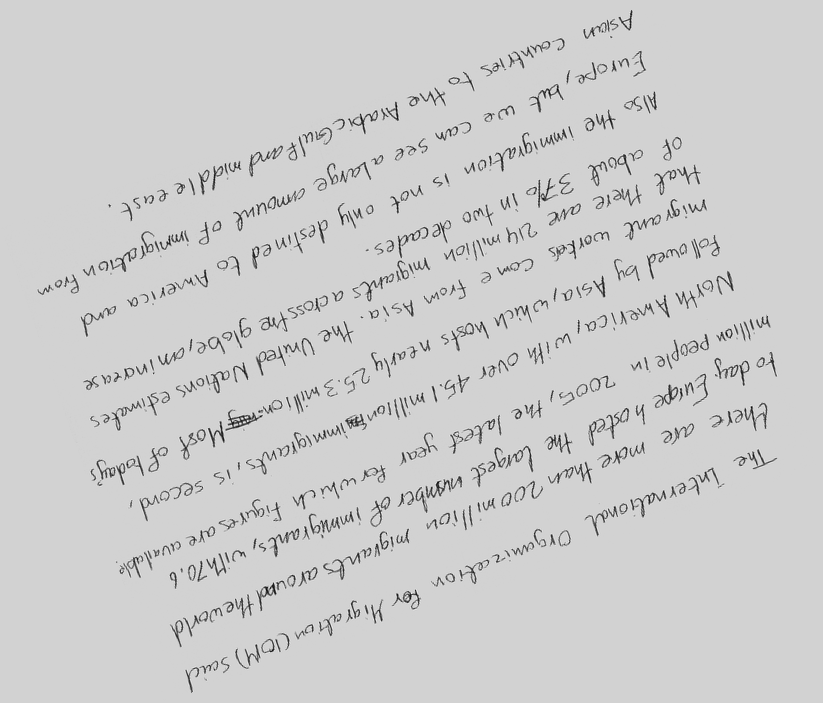 The International Organization for Migration (IOM) said
there are more than 200 million migrants around the world
today. Europe hosted the largest number of immigrants, with 70.6
million people in 2005, the latest year for which figures are available.
North America, with over 45.1 million immigrants, is second,
followed by Asia, which hosts nearly 25.3 million. Most of today's
migrant workers come from Asia. the United Nations estimates
that there are 214 million migrants across the globe, an increase
of about 37% in two decades.
Also the immigration is not only destined to America and
Europe, but we can see a large amount of immigration from
Asian countries to the Arabic Gulf and middle east.